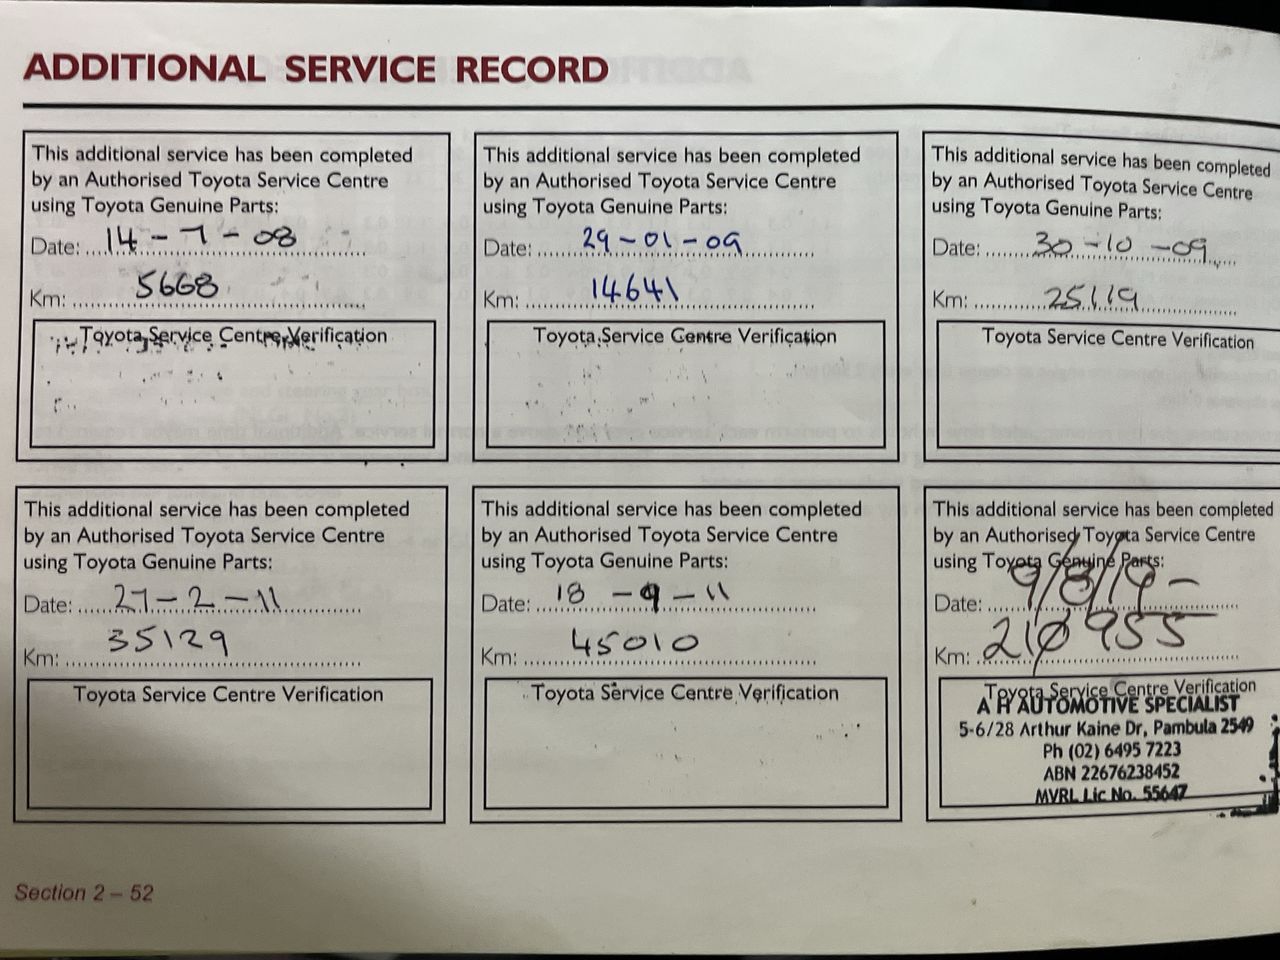 ADDITIONAL SERVICE RECORD
This additional service has been completed
by an Authorised Toyota Service Centre
using Toyota Genuine Parts:
Date: 14-7-08
Km: 5668
Toyota Service Centre Verification
This additional service has been completed
by an Authorised Toyota Service Centre
using Toyota Genuine Parts:
Date: 29-01-09
Km: 14641
Toyota Service Centre Verification
This additional service has been completed
by an Authorised Toyota Service Centre
using Toyota Genuine Parts:
Date: 30-10-09
Km: 25119
Toyota Service Centre Verification
This additional service has been completed
by an Authorised Toyota Service Centre
using Toyota Genuine Parts:
Date: 27-2-11
Km: 35129
Toyota Service Centre Verification
This additional service has been completed
by an Authorised Toyota Service Centre
using Toyota Genuine Parts:
Date: 18-9-11
Km: 45010
Toyota Service Centre Verification
This additional service has been completed
by an Authorised Toyota Service Centre
using Toyota Genuine Parts:
Date: 9/8/19-
Km: 210955
Toyota Service Centre Verification
A H AUTOMOTIVE SPECIALIST
5-6/28 Arthur Kaine Dr, Pambula 2549
Ph (02) 6495 7223
ABN 22676238452
MVRL Lic No. 55647
Section 2 – 52